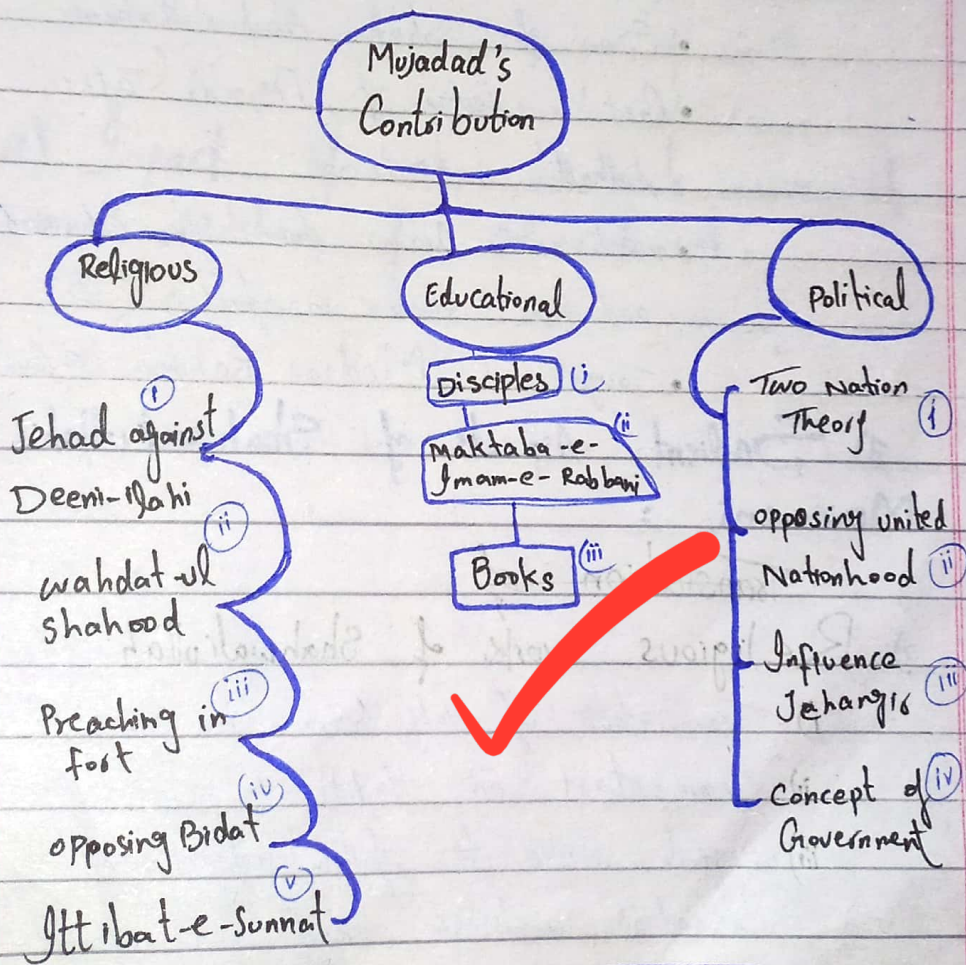 Mujadad's
Contribution
Religious
Educational
Political
i
Jehad against
Deeni-Ilahi
ii
wahdat-ul
shahood
iii
Preaching in
fort
iv
opposing Bidat
v
Ittibat-e-Sunnat
Disciples i
ii
Maktaba-e-
Imam-e-Rabbani
Books iii
Two Nation
Theory i
opposing united
Nationhood ii
Influence
Jehangir iii
Concept of iv
Government